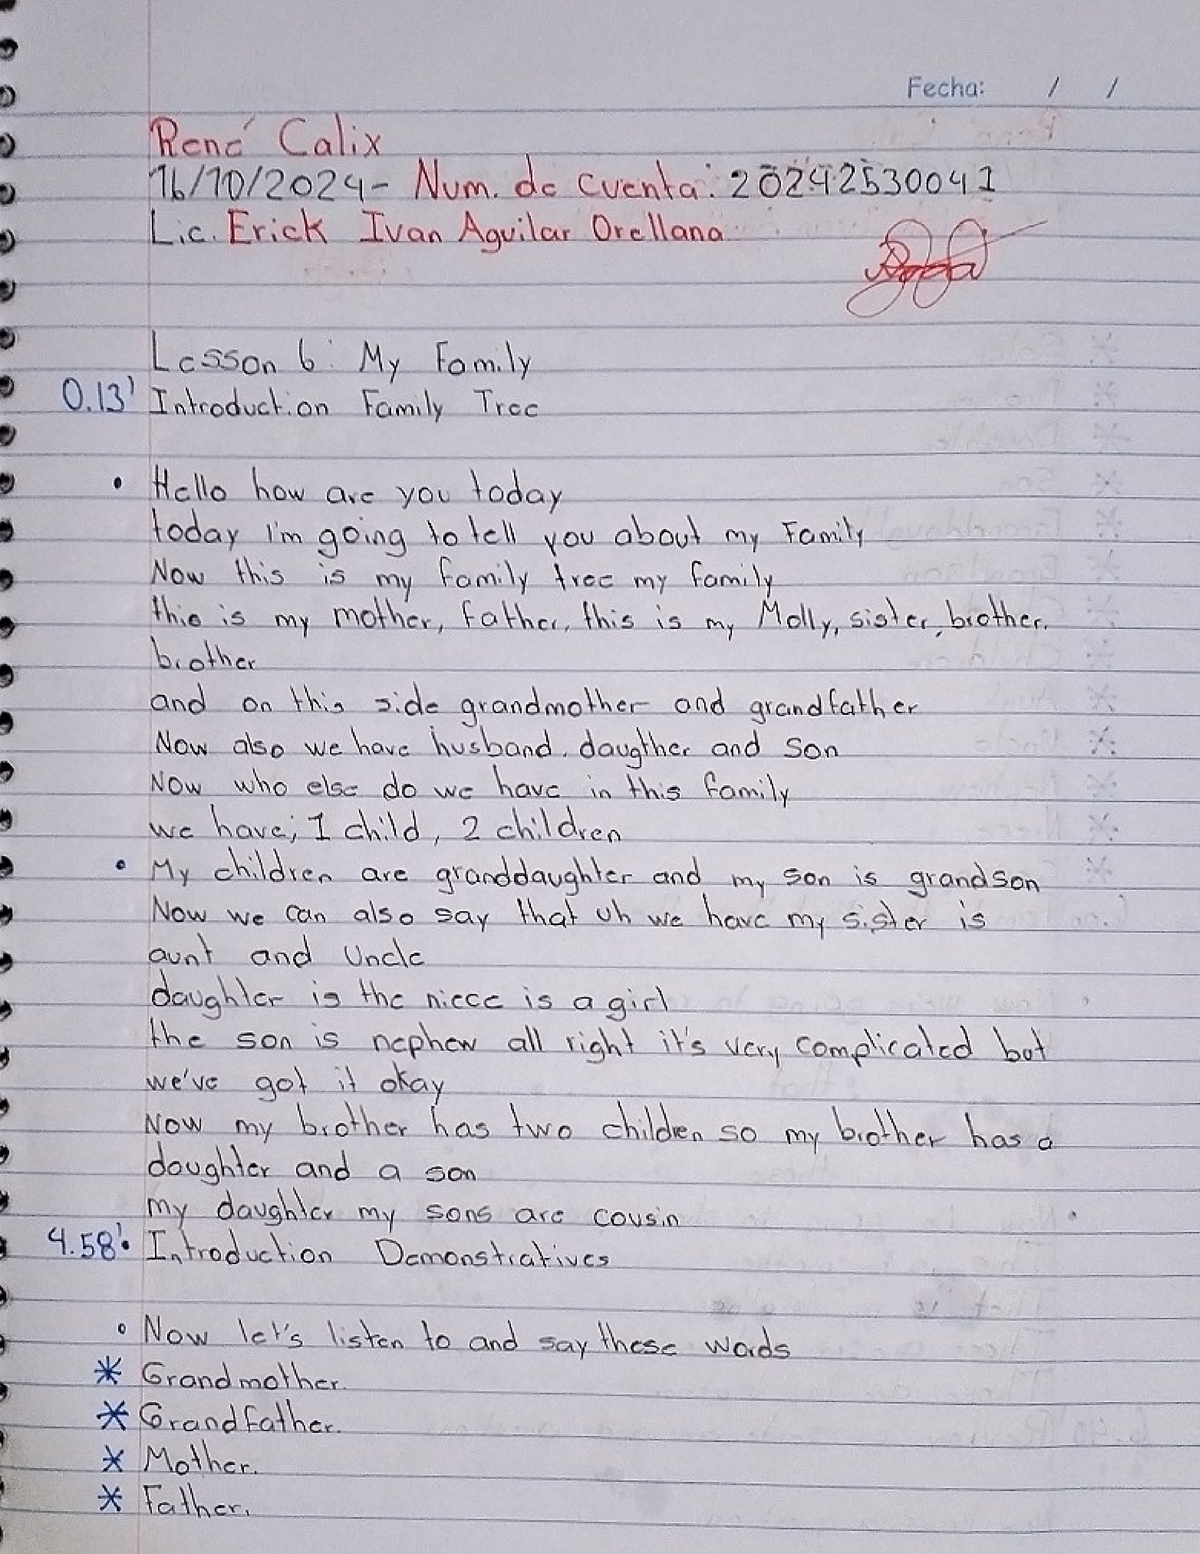 Fecha: / /
René Calix
16/10/2024- Num. de cuenta: 20242530041
Lic. Erick Ivan Aguilar Orellana
Lesson 6: My Family
0.13' Introduction Family Tree
• Hello how are you today
today I'm going to tell you about my Family
Now this is my family tree my family
this is my mother, father, this is my Molly, sister, brother,
brother
and on this side grandmother and grandfather
Now also we have husband, daugther and son
Now who else do we have in this family
we have; 1 child, 2 children
• My children are granddaughter and my son is grandson
Now we can also say that uh we have my sister is
aunt and Uncle
daughter is the niece is a girl
the son is nephew all right it's very complicated but
we've got it okay
Now my brother has two childen so my brother has a
daughter and a son
my daughter my sons are cousin
4.58' • Introduction Demonstratives
• Now let's listen to and say these words
* Grandmother.
* Grandfather.
* Mother.
* Father.